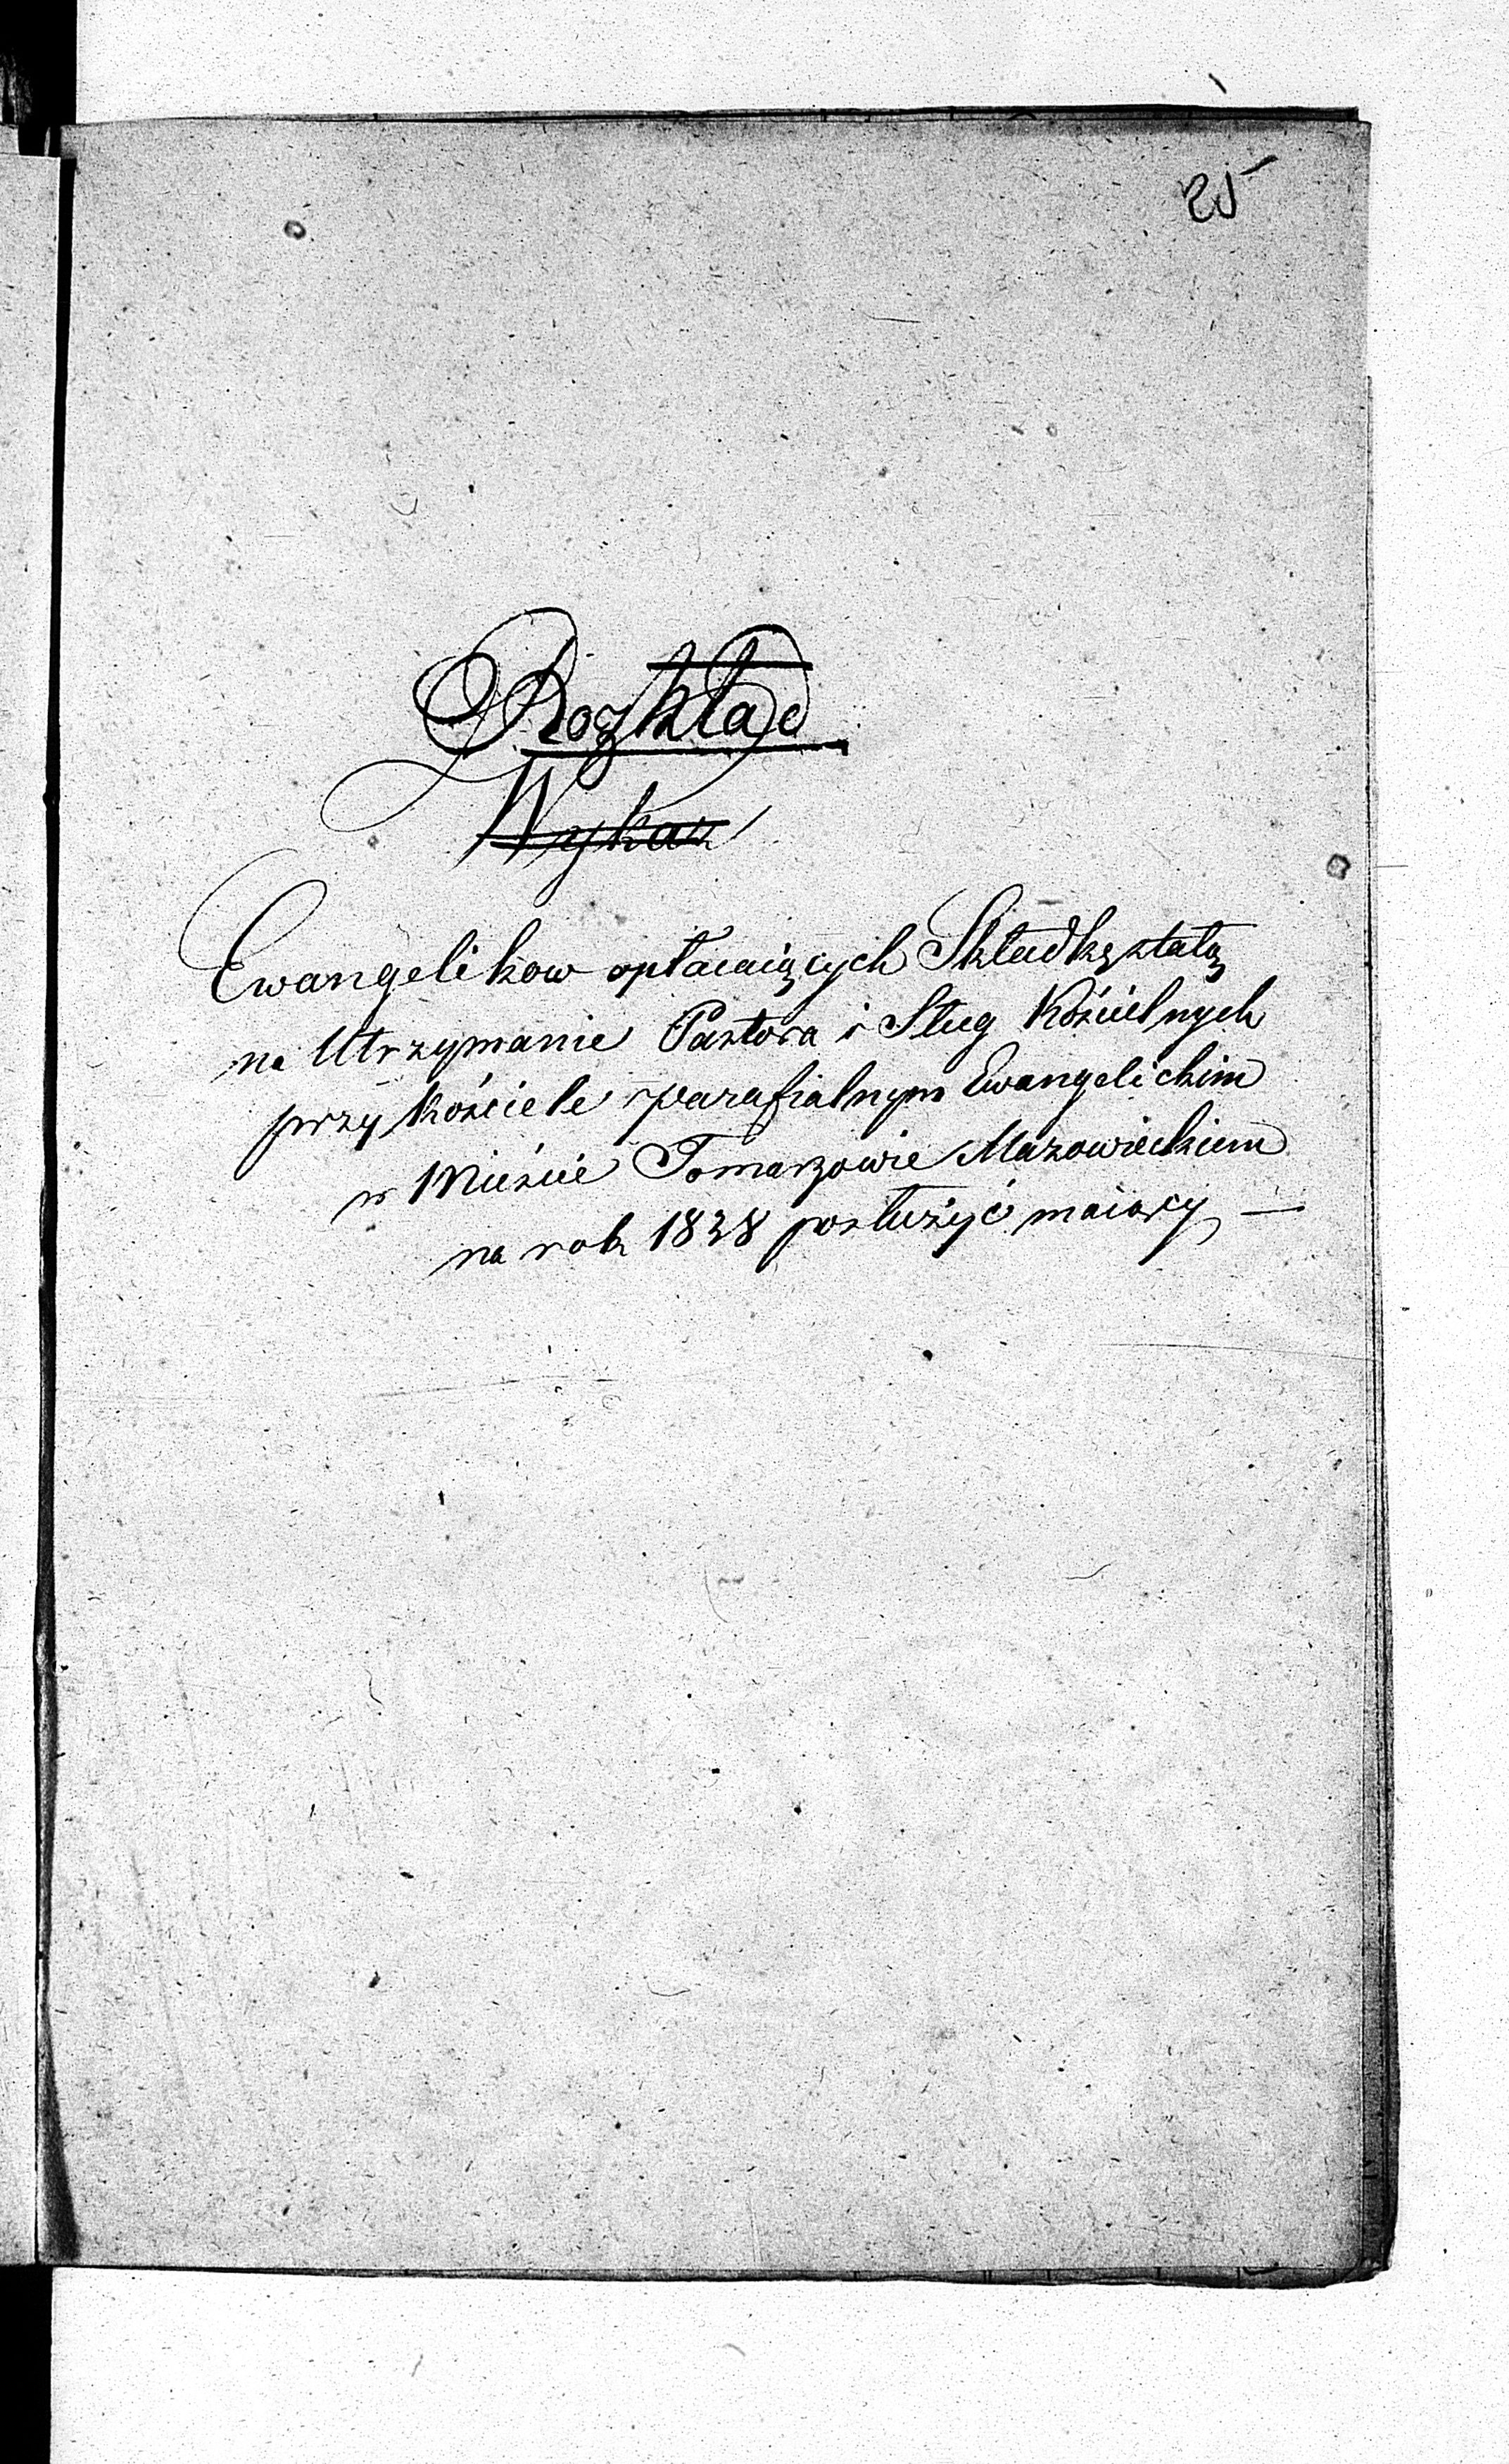 25
Rozkład
Wykaz
Ewangelikow opłacaiących Składkę stałą
na Utrzymanie Pastora i Sług Kościelnych
przy Kościele parafialnym Ewangelickim
w Mieście Tomaszowie Mazowieckiem
na rok 1838 posłużyć maiący —